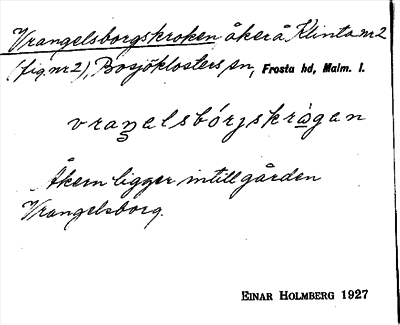 Vrangelsborgskroken, åker å Klinta nr 2
(fig. nr 2), Bosjöklosters sn, Frosta hd, Malm. l.
vraŋalsbórjskràgan
Åkern ligger intill gården
Vrangelsborg.
EINAR HOLMBERG 1927